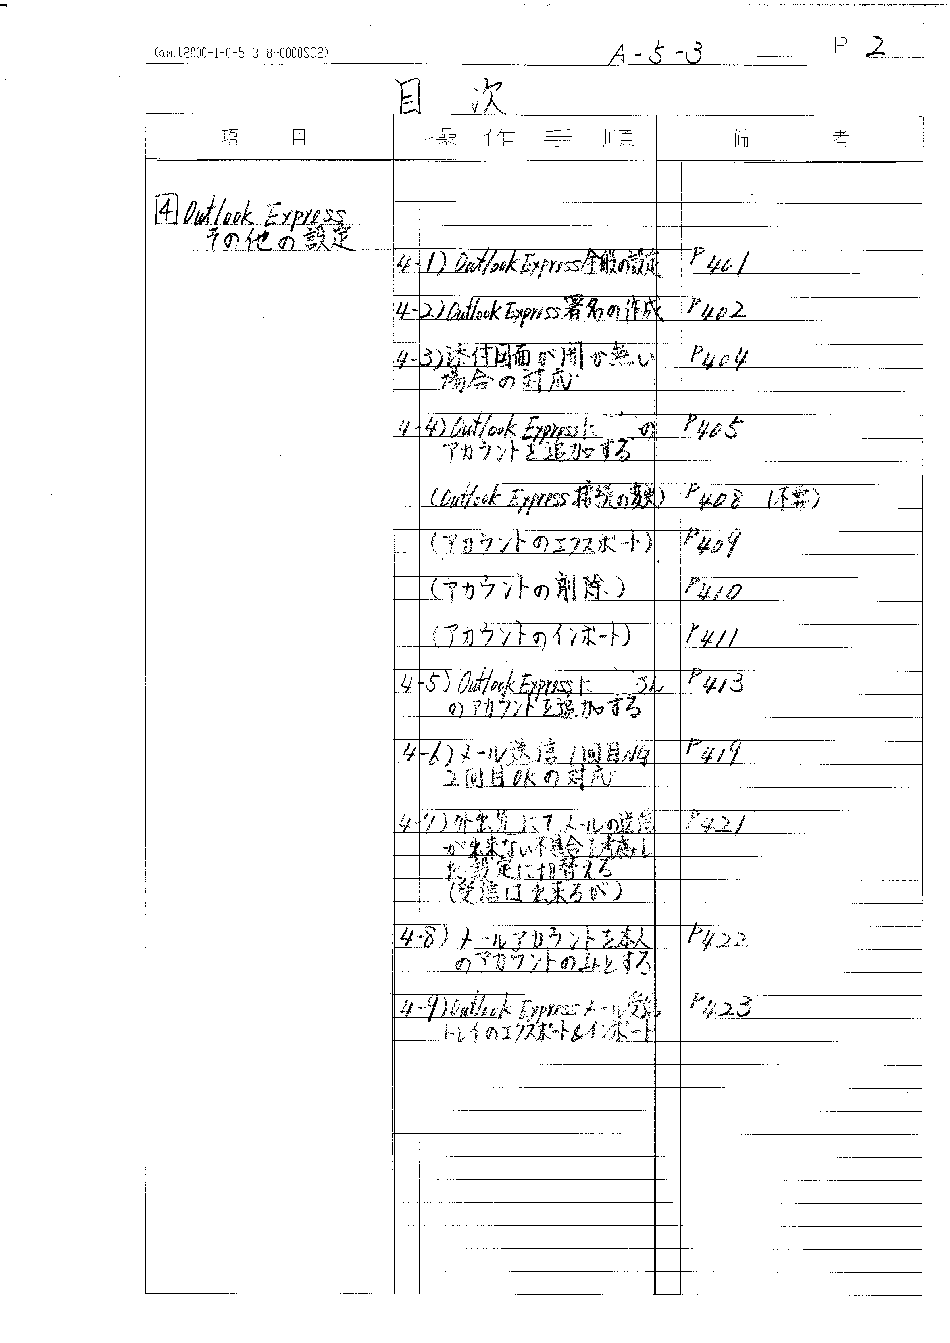 A-5-3 P 2
目 次
項 目 操 作 手 順 備 考
4 Outlook Express
その他の設定
4-1) Outlook Express 全般の設定 P401
4-2) Outlook Express 署名の作成 P402
4-3) 添付図面が開か無い P404
場合の対応
4-4) Outlook Expressに の P405
アカウントを追加する
(Outlook Express 接続の変更) P408 (不要)
(アカウントのエクスポート) P409
(アカウントの削除) P410
(アカウントのインポート) P411
4-5) Outlook Expressに さん P413
のアカウントを追加する
4-6) メール送信 1回目NG P419
2回目OKの対応
4-7) 外出先にてメールの送信 P421
が出来ない不具合を考慮し
た設定に切替える
(受信は出来るが)
4-8) メールアカウントを本人 P422
のアカウントのみとする
4-9) Outlook Express メール P423
トレイのエクスポート&インポート